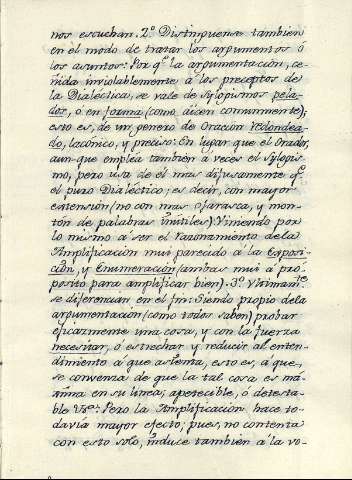 nos escuchan. 2.º Distinguense tambien
en el modo de tratar los argumentos ó
los asuntos: Por q.e la argumentación, ce-
ñida inviolablemente á los preceptos de
la Dialéctica, se vale de Sylogismos pela-
dos, ó en forma (como dicen comunmente);
esto es, de un genero de Oración redondea-
do, lacónico, y preciso: En lugar que el Orador,
aun que emplea tambien á veces el Sylogis-
mo, pero usa de el mas difusamente q.e
el puro Dialéctico; es decir, con mayor
extensión (no con mas ojarasca, y mon-
tón de palabras inútiles): Viniendo por
lo mismo á ser el razonamiento dela
Amplificación mui parecido á la Exposi-
ción, y Enumeración (ambas mui á pro-
posito para amplificar bien). 3.º Ultimam.te
se diferencian en el fin: Siendo propio dela
argumentación (como todos saben) probar
eficazmente una cosa, y con la fuerza
necesitar, ó estrechar y reducir al enten-
dimiento á que asienta, esto es, á que
se convenza de que la tal cosa es má-
xima en su linea; apetecible, ó detesta-
ble &.ª: Pero la Amplificación hace to-
davia mayor efecto; pues, no contenta
con esto solo, induce tambien á la vo-